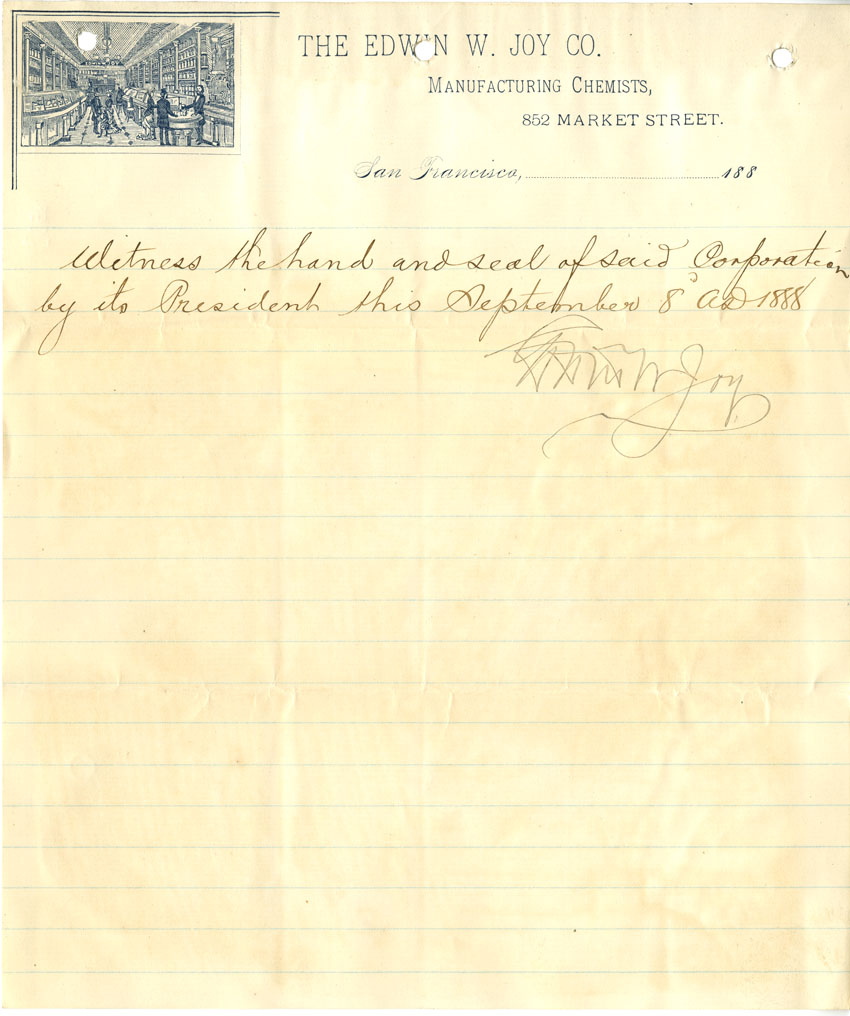 THE EDWIN W. JOY CO.
MANUFACTURING CHEMISTS,
852 MARKET STREET.
San Francisco, 188
Witness the hand and seal of said Corporation
by its President this September 8 AD 1888
Edwin W Joy